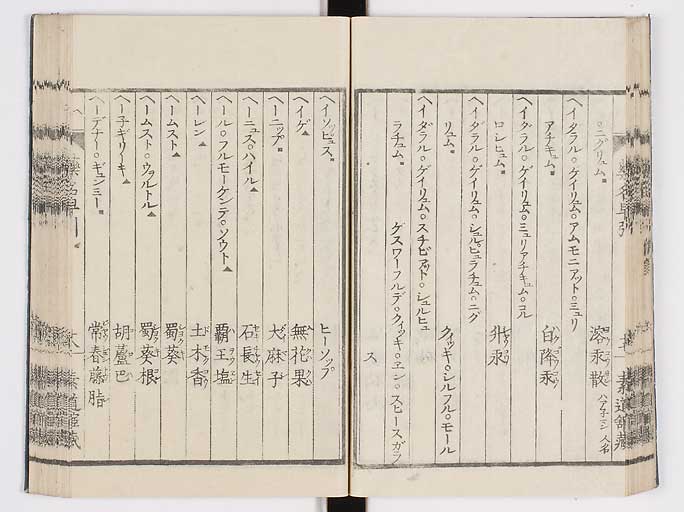 ○ニグリュム。 溶汞散 ハア子マン人名
ヘイダラル○ゲイリュム○アムモニアット○ミュリ
アチキュム。 白降汞
ヘイダラル○ゲイリュム○ミュリアチキュム○コル
ロシヒュム。 升汞
ヘイダラル○ゲイリュム○シュルヒュラチュム○ニグ
リュム。 クイッキ○シルフル○モール
ヘイダラル○ゲイリュム○スチビアット○シュルヒュ
ラチュム。 ゲスワーフルデ○クイッキ○エン○スピースガラ
ス
ヘイソピュス。 ヒーソップ
ヘイゲ▲ 無花果
ヘーニップ。 大麻子
ヘーニュス○ハイル▲ 石長生
ヘール○フルモーゲンデ○ソウト▲ 覇王塩
ヘーレン▲ 土木香
ヘームスト▲ 蜀葵
ヘームスト○ウヲルトル▲ 蜀葵根
ヘー子ギリーキ▲ 胡蘆巴
ヘーデナー○ギュンミー。 常春藤脂